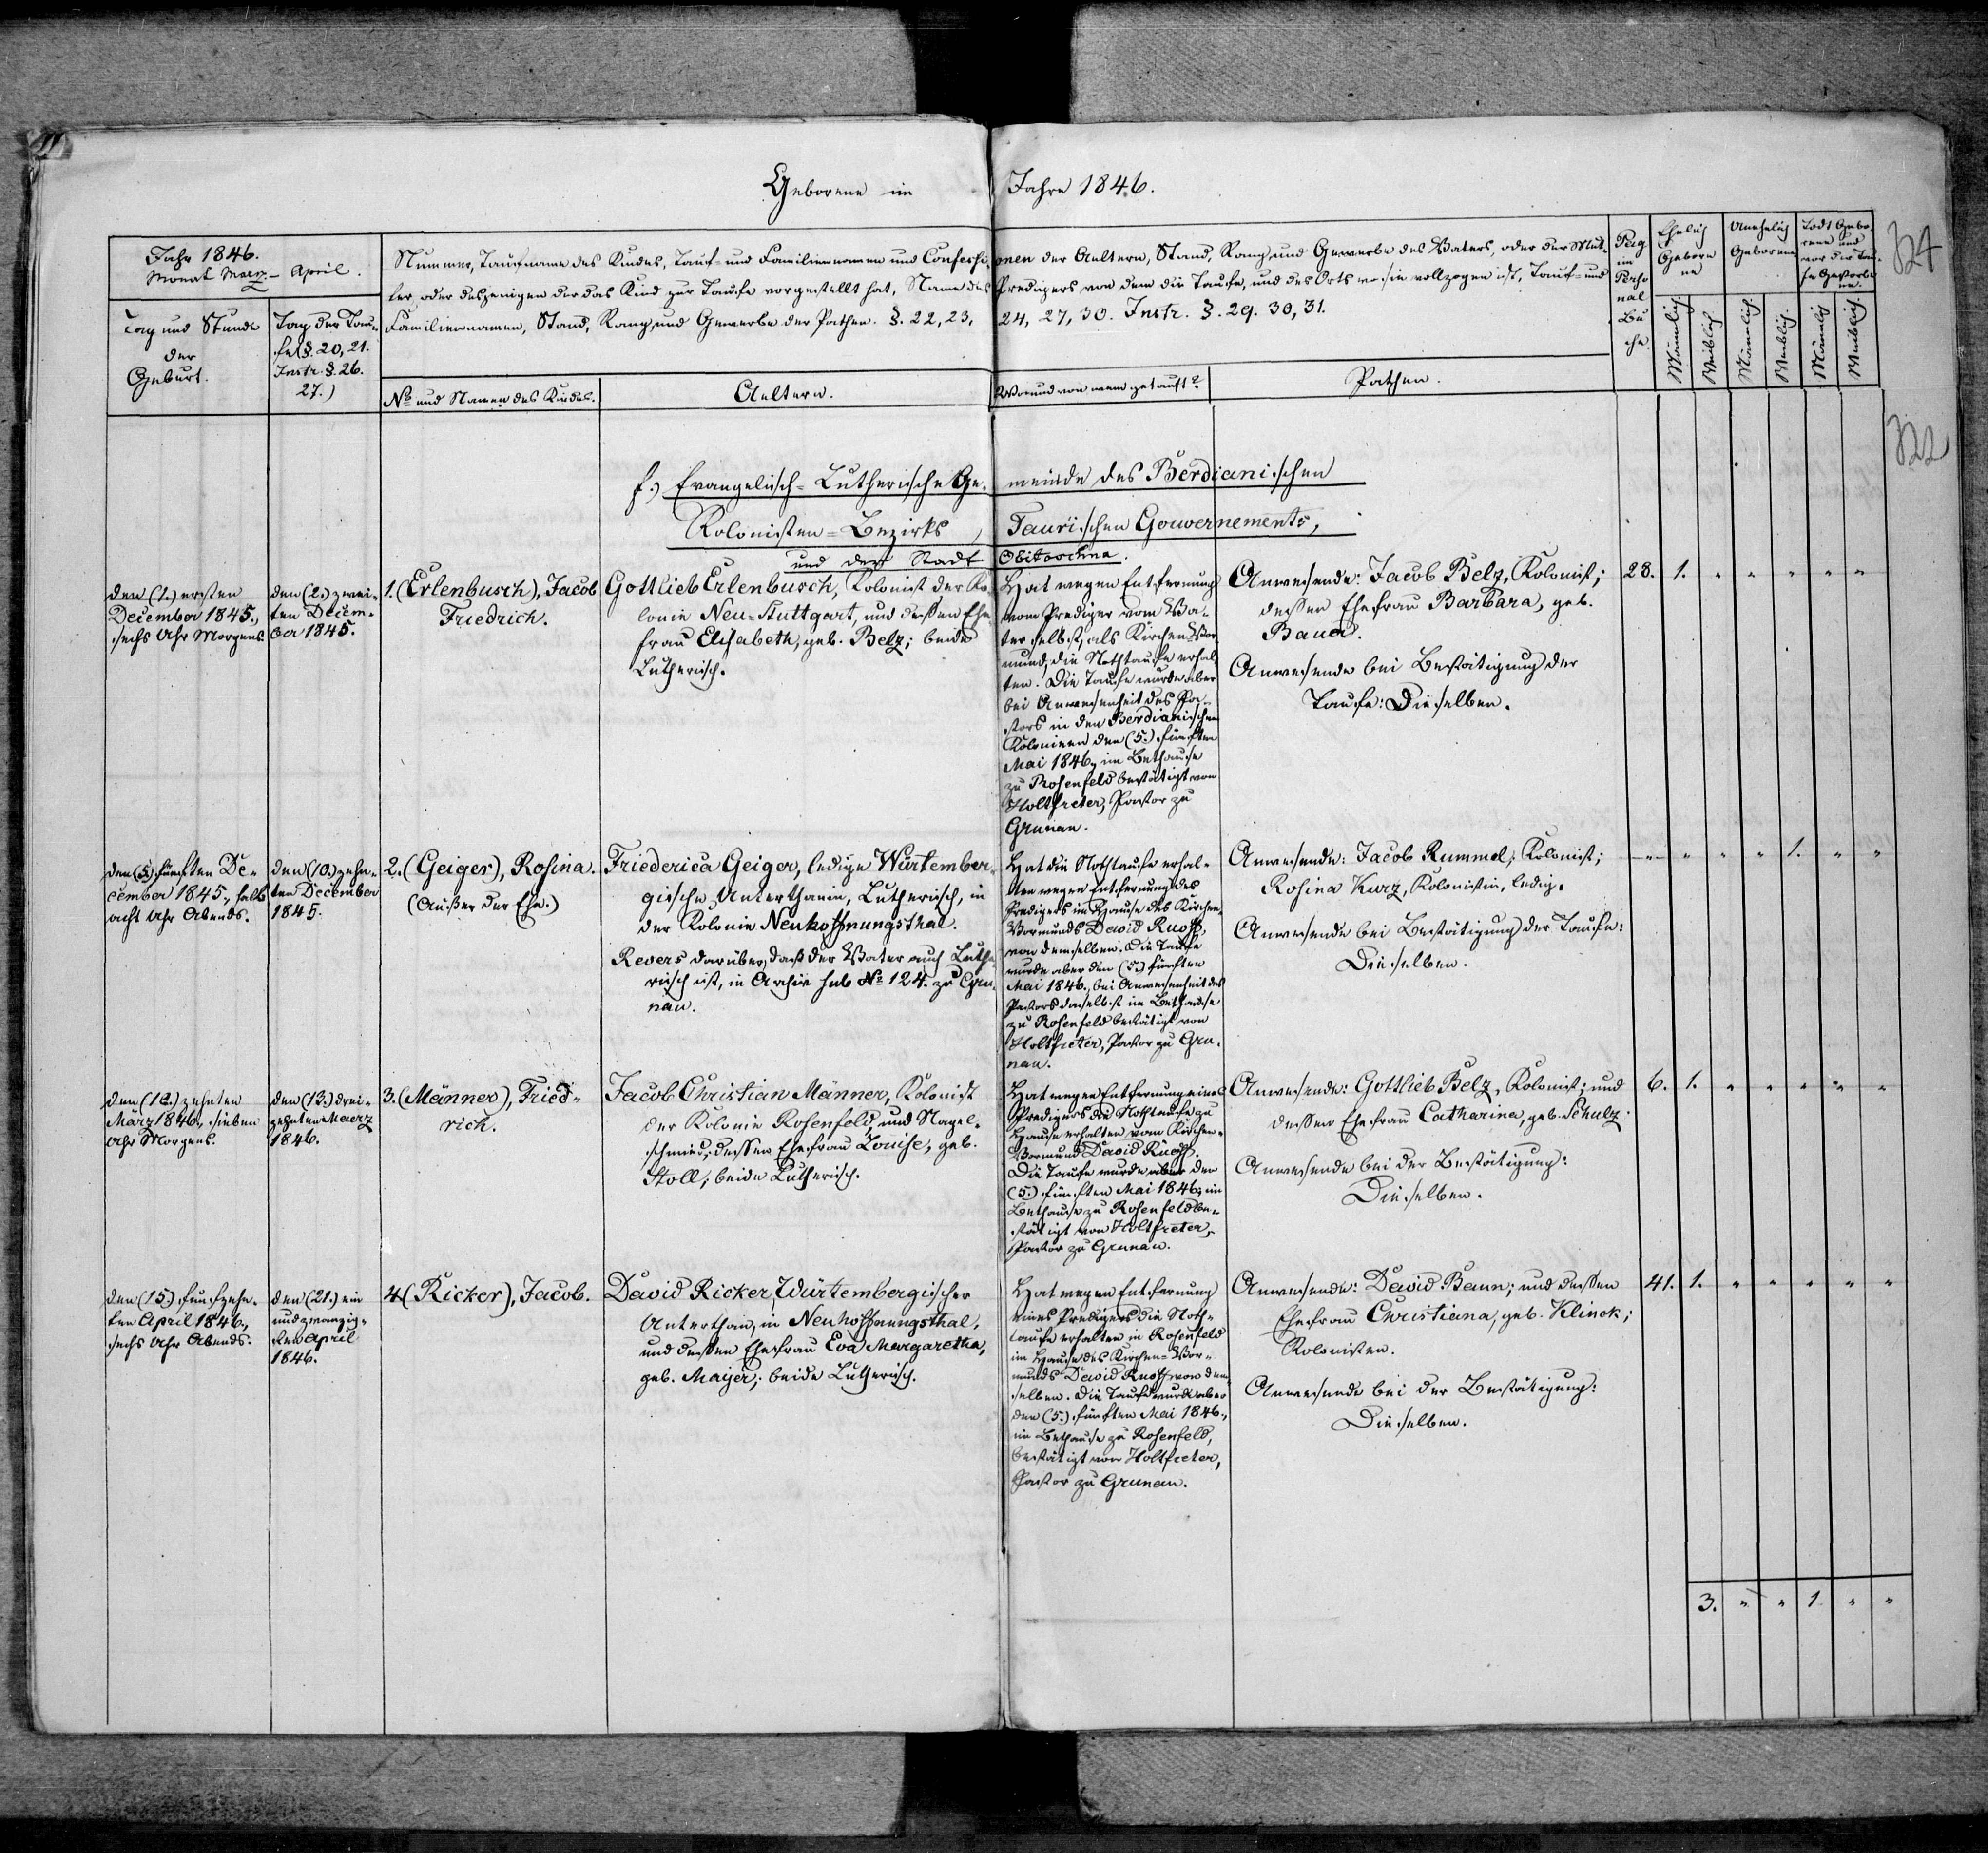 Geborene im Jahre 1846.
324
322
Jahr 1846.
Monat Maerz – April.
Tag und Stunde
der
Geburt.
Tag der Tau-
fe (§. 20, 21.
Instr. §. 26.
27.)
Nummer, Taufname des Kindes, Tauf- und Familiennamen und Confessi- onen der Aeltern, Stand, Rang, und Gewerbe des Vaters, oder der Mut-
ter, oder desjenigen der das Kind zur Taufe vorgestellt hat, Name des Predigers von dem die Taufe, und des Orts wo sie vollzogen ist, Tauf- und
Familiennamen, Stand, Rang, und Gewerbe der Pathen. §. 22, 23, 24, 27, 30. Instr. §. 29. 30, 31.
No und Namen des Kindes.
Aeltern.
Wo und von wem getauft?
Pathen.
Pag.
im
Perso
nal
Bu
che.
Ehelich
Gebore
ne
Unehelich
Geborene
Todt Gebo-
rene und
vor der Tau-
fe Gestorbe
ne.
Männlich
Weiblich
Männlich
Weiblich
Männlich
Weiblich
f.) Evangelisch-Lutherische Ge- meinde des Berdianischen
Kolonisten-Bezirks, Taurischen Gouvernements,
und der Stadt Obitoschna.
den (1.) ersten
December 1845.,
sechs Uhr Morgens.
den (2.) zwei-
ten Decem-
ber 1845.
1. (Erlenbusch), Jacob
Friedrich.
Gottlieb Erlenbusch, Kolonist der Ko-
lonie Neu-Stuttgart, und dessen Ehe
frau Elisabeth, geb. Belz; beide
Lutherisch.
Hat wegen Entfernung
vom Prediger vom Va-
ter selbst, als Kirchen-Vor
mund, die Nothtaufe erhal-
ten. Die Taufe wurde aber
bei Anwesenheit des Pa-
stors in den Berdianischen
Kolonieen den (5.) fünften
Mai 1846, im Bethause
zu Rosenfeld bestätigt von
Holtfreter, Pastor zu
Grunau.
Anwesende: Jacob Belz, Kolonist;
dessen Ehefrau Barbara, geb.
Bauer.
Anwesende bei Bestätigung der
Taufe: Dieselben.
28. 1. " " " " "
den (5.) fünften De-
cember 1845., halb
acht Uhr Abends.
den (10.) zehn-
ten December
1845.
2. (Geiger), Rosina.
(Außer der Ehe.)
Friederica Geiger, ledige Würtember-
gische Unterthanin, Lutherisch, in
der Kolonie Neuhoffnungsthal.
Revers darüber, daß der Vater auch Luthe
risch ist, in Archiv sub No 124. zu Gru-
nau.
Hat die Nothtaufe erhal-
ten wegen Entfernung des
Predigers im Hause des Kirchen-
Vormunds David Ruoff,
von demselben. Die Taufe
wurde aber den (5.) fünften
Mai 1846., bei Anwesenheit des
Pastors daselbst im Bethause
zu Rosenfeld bestätigt von
Holtfreter, Pastor zu Gru-
nau.
Anwesende: Jacob Rummel, Kolonist;
Rosina Kurz, Kolonistin, ledig.
Anwesende bei Bestätigung der Taufe:
Dieselben.
— " " " 1. " "
März 1846., sieben
Uhr Morgens.
den (13.) drei-
zehnten Maerz
1846.
3. (Männer), Fried-
rich.
Jacob Christian Männer, Kolonist
der Kolonie Rosenfeld und Nagel-
schmied; dessen Ehefrau Louise, geb.
Stoll; beide Lutherisch.
Hat wegen Entfernung eines
Predigers die Nothtaufe zu
Hause erhalten vom Kirchen-
Vormund David Ruoff.
Die Taufe wurde aber den
(5.) fünften Mai 1846, im
Bethause zu Rosenfeld be-
stätigt von Holtfreter,
Pastor zu Grunau.
Anwesende: Gottlieb Belz, Kolonist; und
dessen Ehefrau Catharina, geb. Schulz.
Anwesende bei der Bestätigung:
Dieselben.
6. 1. " " " " "
den (15.) fünfzehn-
ten April 1846.,
sechs Uhr Abends.
den (21.) ein
und zwanzig-
sten April
1846.
4. (Ricker), Jacob.
David Ricker, Würtembergischer
Unterthan, in Neuhoffnungsthal,
und dessen Ehefrau Eva Margaretha,
geb. Mayer; beide Lutherisch.
Hat wegen Entfernung
eines Predigers die Noth-
taufe erhalten in Rosenfeld
im Hause des Kirchen-Vor-
munds David Ruoff von dem-
selben. Die Taufe wurde aber
den (5.) fünften Mai 1846.,
im Bethause zu Rosenfeld,
bestätigt von Holtfreter,
Pastor zu Grunau.
Anwesende: David Baun; und dessen
Ehefrau Christiana, geb. Klinck;
Kolonisten.
Anwesende bei der Bestätigung:
Dieselben.
41. 1. " " " " "
3. " " 1 " "